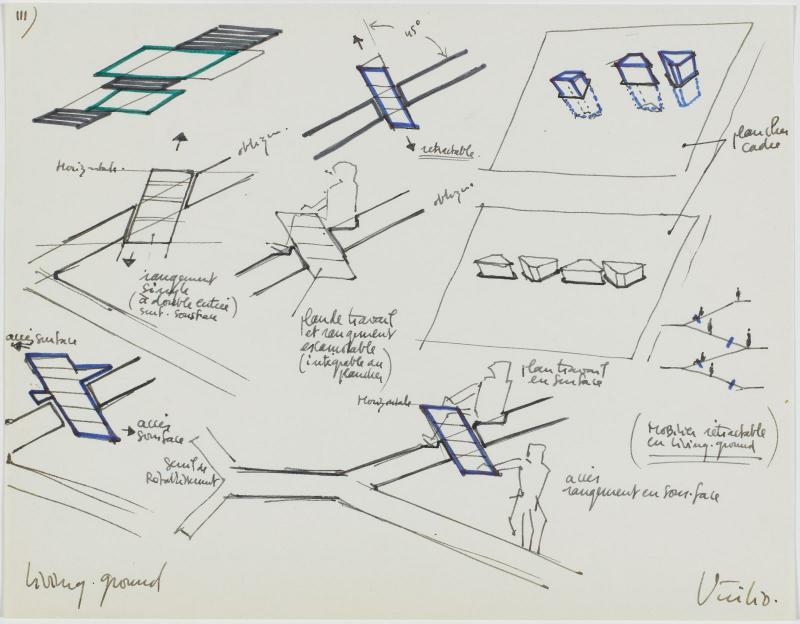 III)
45°
rétractable.
plancher
cadre
Horizontale.
oblique.
oblique.
rangement
simple
(à double entrée)
surf. sousface
plan de travail
et rangement
escamotable
(intégrable au
plancher)
accès surface
accès
sousface
Horizontale
plan travail
en surface
(Mobilier rétractable
en Living.ground)
Seuil de
Rétablissement
accès
rangement en sous.face
Living.ground
Virilio.